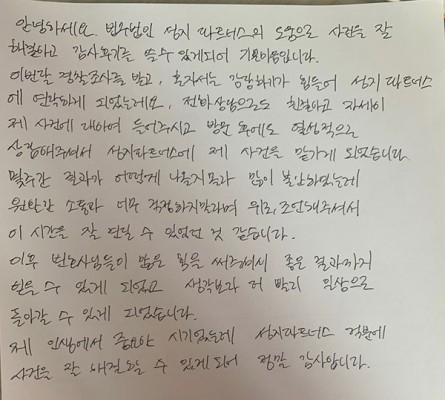 안녕하세요. 법무법인 성지 파트너스의 도움으로 사건을 잘
해결하고 감사후기를 쓸 수 있게되어 기쁜마음입니다.
이번달 경찰조사를 받고, 혼자서는 감당하기가 힘들어 성지 파트너스
에 연락하게 되었는데요, 전화상담으로도 친절하고 자세히
제 사건에 대하여 들어주시고 방문 후에도 열성적으로
상담해주셔서 성지파트너스에 제 사건을 맡기게 되었습니다.
몇주간 결과가 어떻게 나올지몰라 많이 불안하였는데
원활한 소통과 너무 걱정하지말라며 위로, 조언해주셔서
이 시간을 잘 견딜 수 있었던 것 같습니다.
이후 변호사님들이 많은 힘을 써주셔서 좋은 결과까지
얻을 수 있게 되었고 생각보다 더 빨리 일상으로
돌아갈 수 있게 되었습니다.
제 인생에서 중요한 시기였는데 성지파트너스 덕분에
사건을 잘 해결할 수 있게 되어 정말 감사합니다.